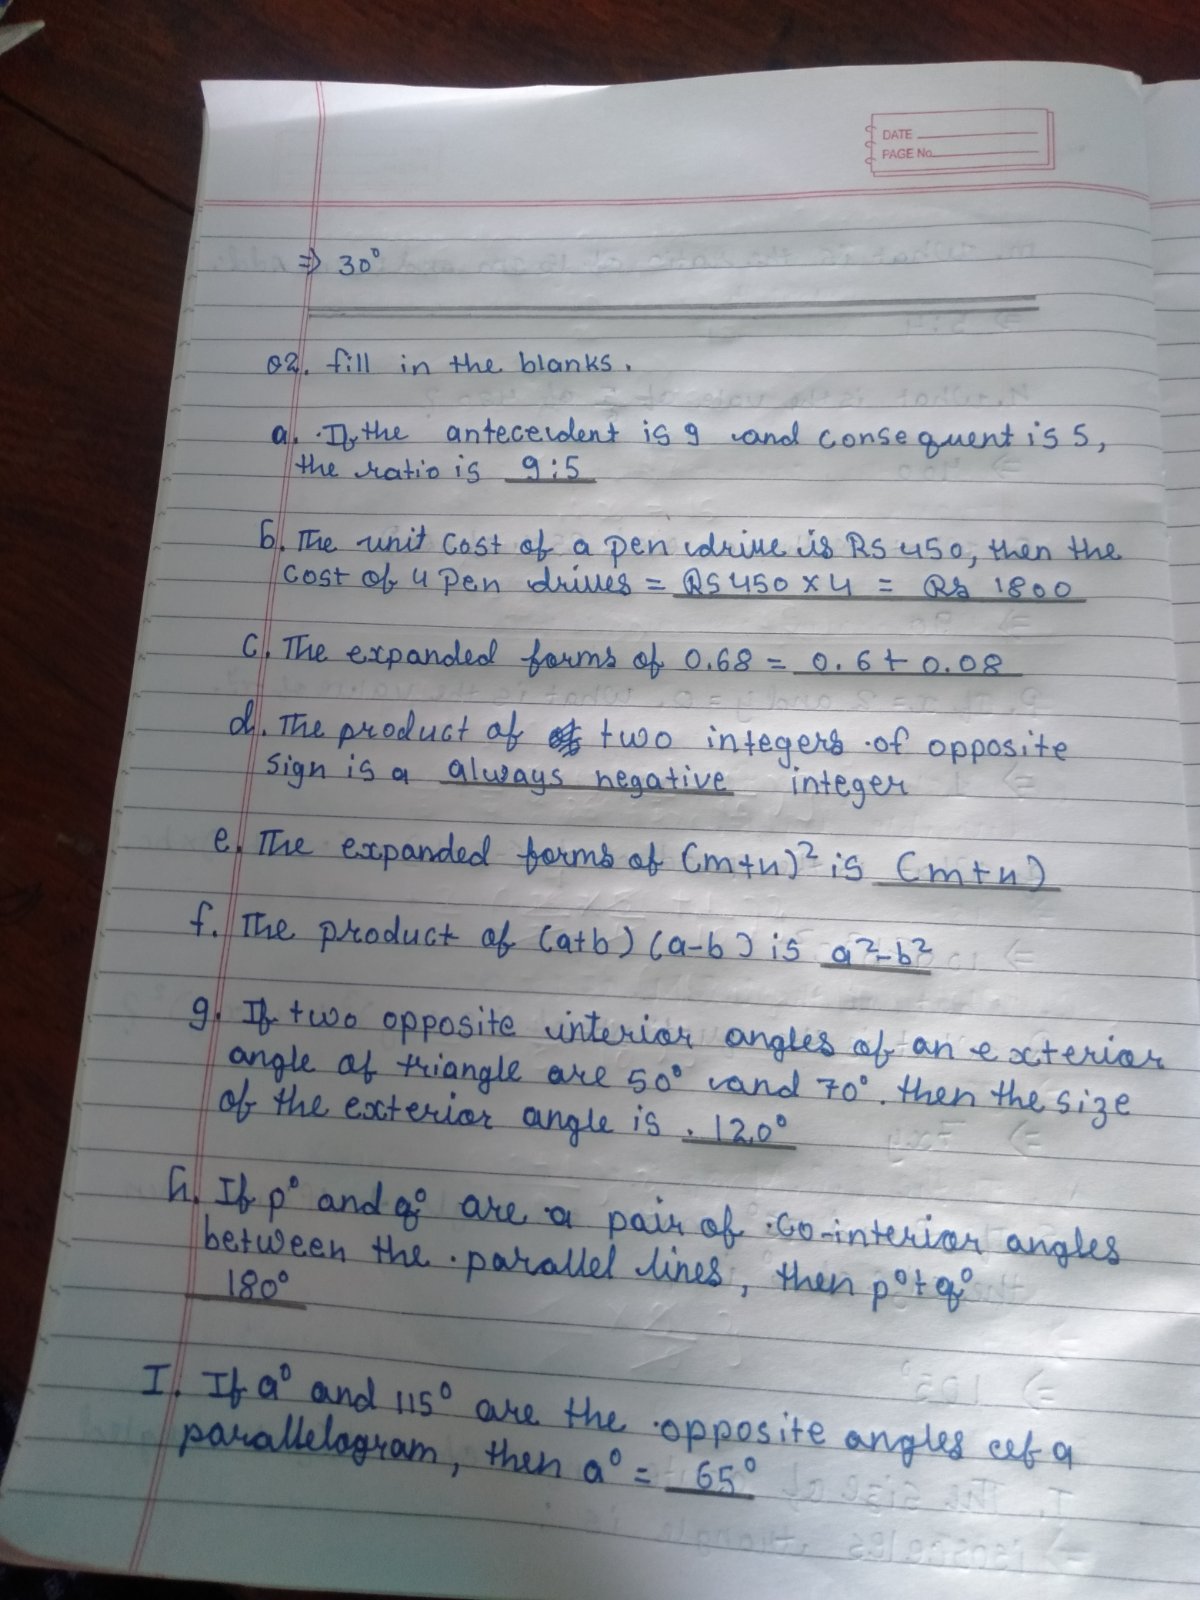 DATE
PAGE No.
⇒ 30°
Q2. fill in the blanks.
a. If the antecedent is 9 and consequent is 5,
the ratio is 9:5
b. The unit cost of a pen drive is RS 450, then the
cost of 4 pen drives = RS 450 × 4 = Rs 1800
c. The expanded forms of 0.68 = 0.6 + 0.08
d. The product of two integers of opposite
sign is a always negative integer
e. The expanded forms of (m+n)² is (m+n)
f. The product of (a+b) (a-b) is a²-b²
g. If two opposite interior angles of an exterior
angle of triangle are 50° and 70°. then the size
of the exterior angle is . 120°
h. If p° and q° are a pair of co-interior angles
between the parallel lines, then p°+q°
180°
I. If a° and 115° are the opposite angles of a
parallelogram, then a° = 65°